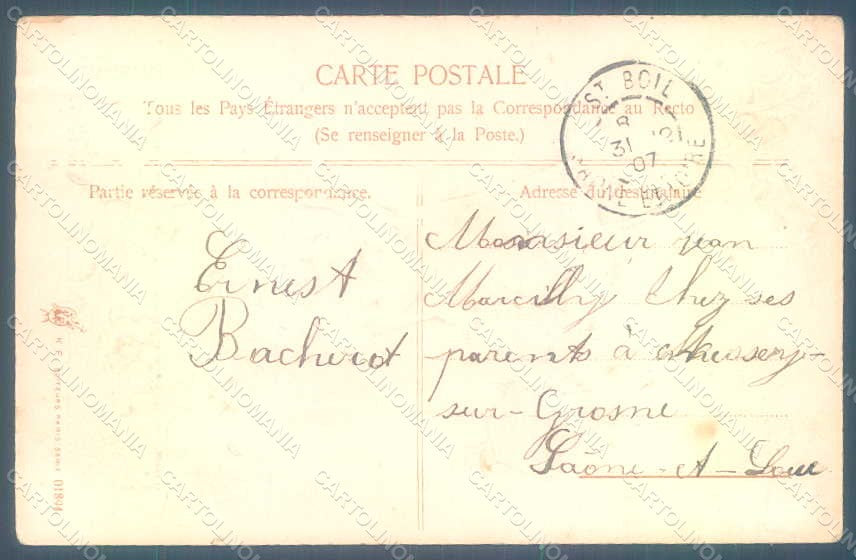 CARTE POSTALE
Tous les Pays Étrangers n'acceptent pas la Correspondance au Recto
(Se renseigner à la Poste.)
ST BOIL
8
31
07
SAÔNE ET LOIRE
Partie réservée à la correspondance.
Adresse du destinataire
Ernest
Bacherot
Monsieur jean
Marcilly Chez ses
parents à
sur-Grosne
Saône-et-Loire
01894
CARTOLINOMANIA